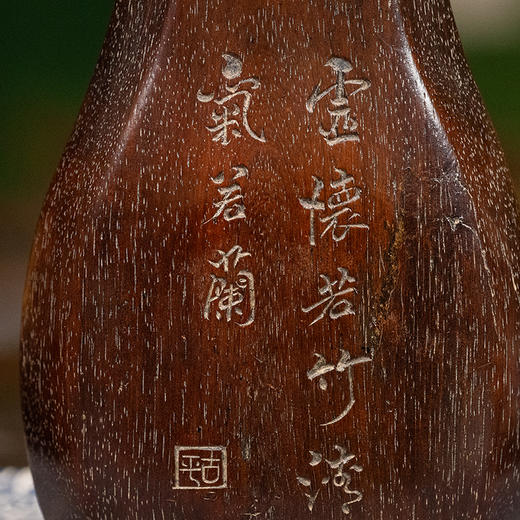 虛懷若竹清
氣若蘭
平古